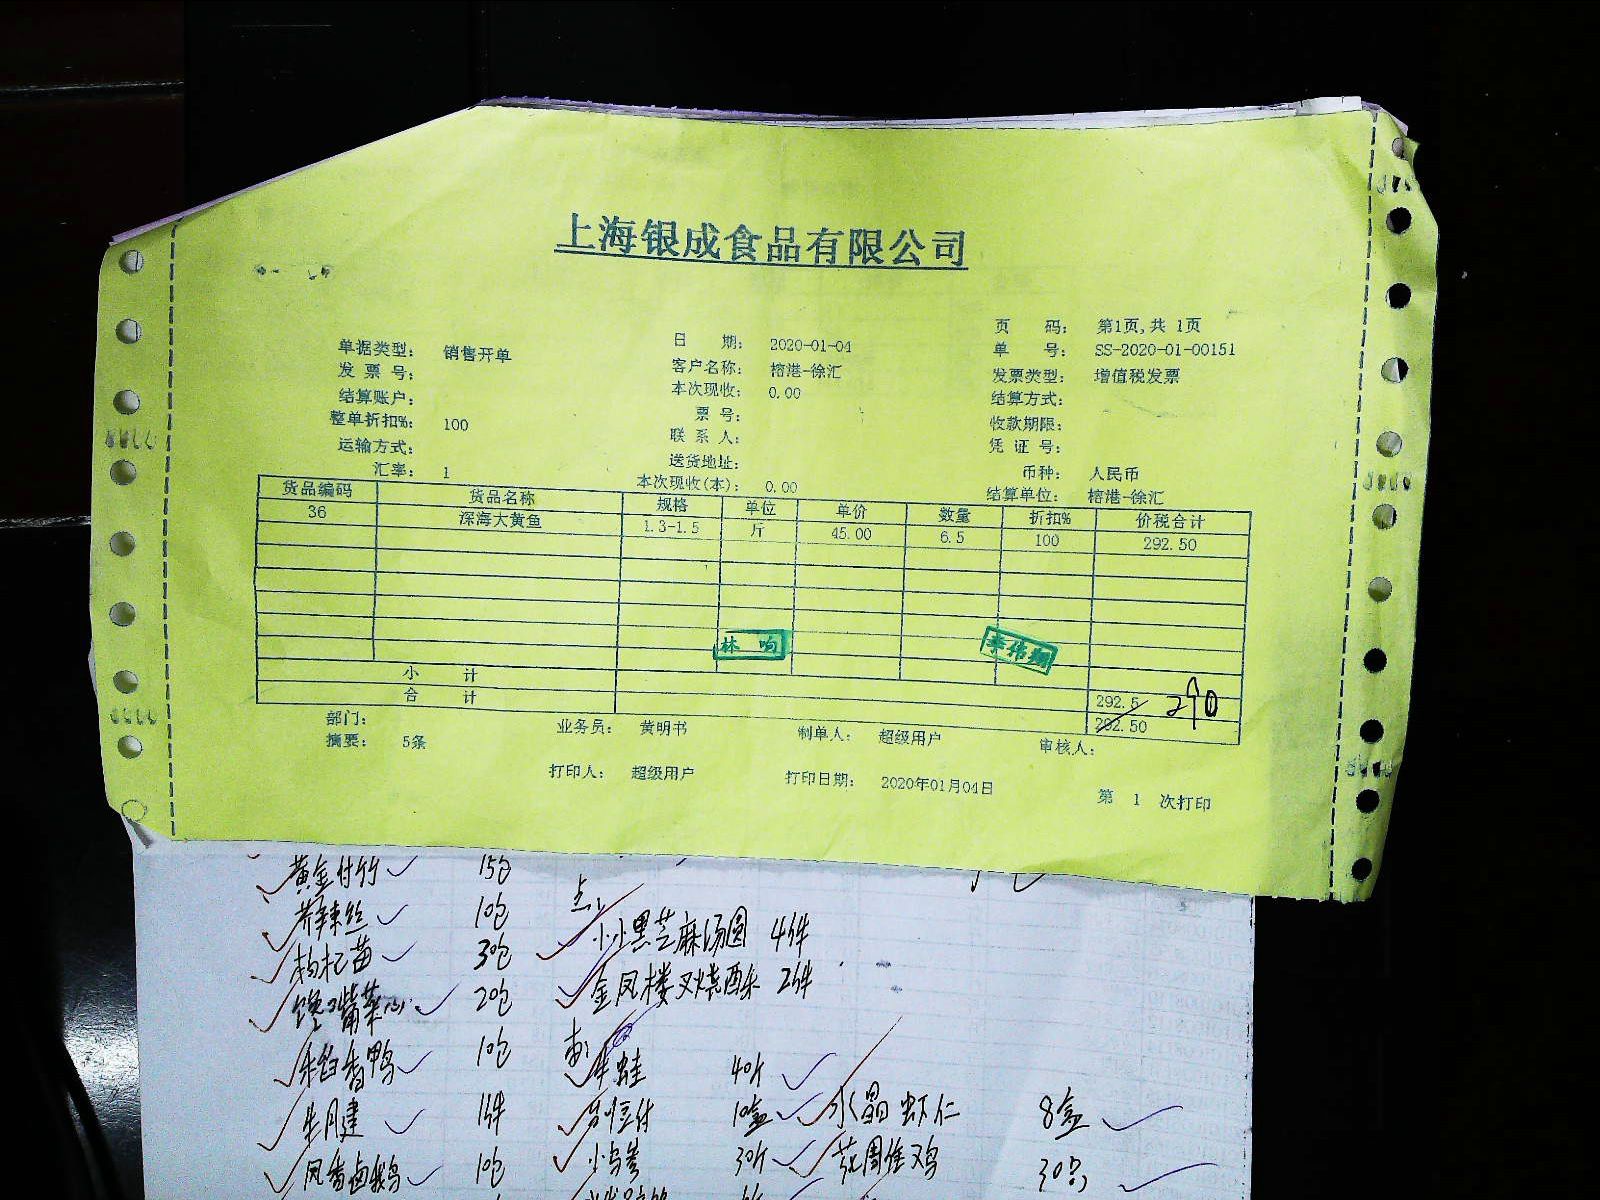 上海银成食品有限公司
页 码： 第1页,共 1页
单据类型： 销售开单 日 期： 2020-01-04 单 号： SS-2020-01-00151
发 票 号： 客户名称： 榕港-徐汇 发票类型： 增值税发票
结算账户： 本次现收： 0.00 结算方式：
整单折扣%： 100 票 号： 收款期限：
运输方式： 联 系 人： 凭 证 号：
汇率： 1 送货地址： 币种： 人民币
本次现收(本)： 0.00 结算单位： 榕港-徐汇
货品编码 货品名称 规格 单位 单价 数量 折扣% 价税合计
36 深海大黄鱼 1.3-1.5 斤 45.00 6.5 100 292.50
林 响 李伟翔
小 计 292.5 290
合 计 292.50
部门： 业务员： 黄明书 制单人： 超级用户 审核人：
摘要： 5条
打印人： 超级用户 打印日期： 2020年01月04日 第 1 次打印
黄金付竹 15包
芥辣丝 10包 小小黑芝麻汤圆 4件
枸杞苗 3包 金凤楼叉烧酥 2件
20包
10包 牛蛙 40斤
1件 10盒 水晶虾仁 8盒
10包 30斤 30